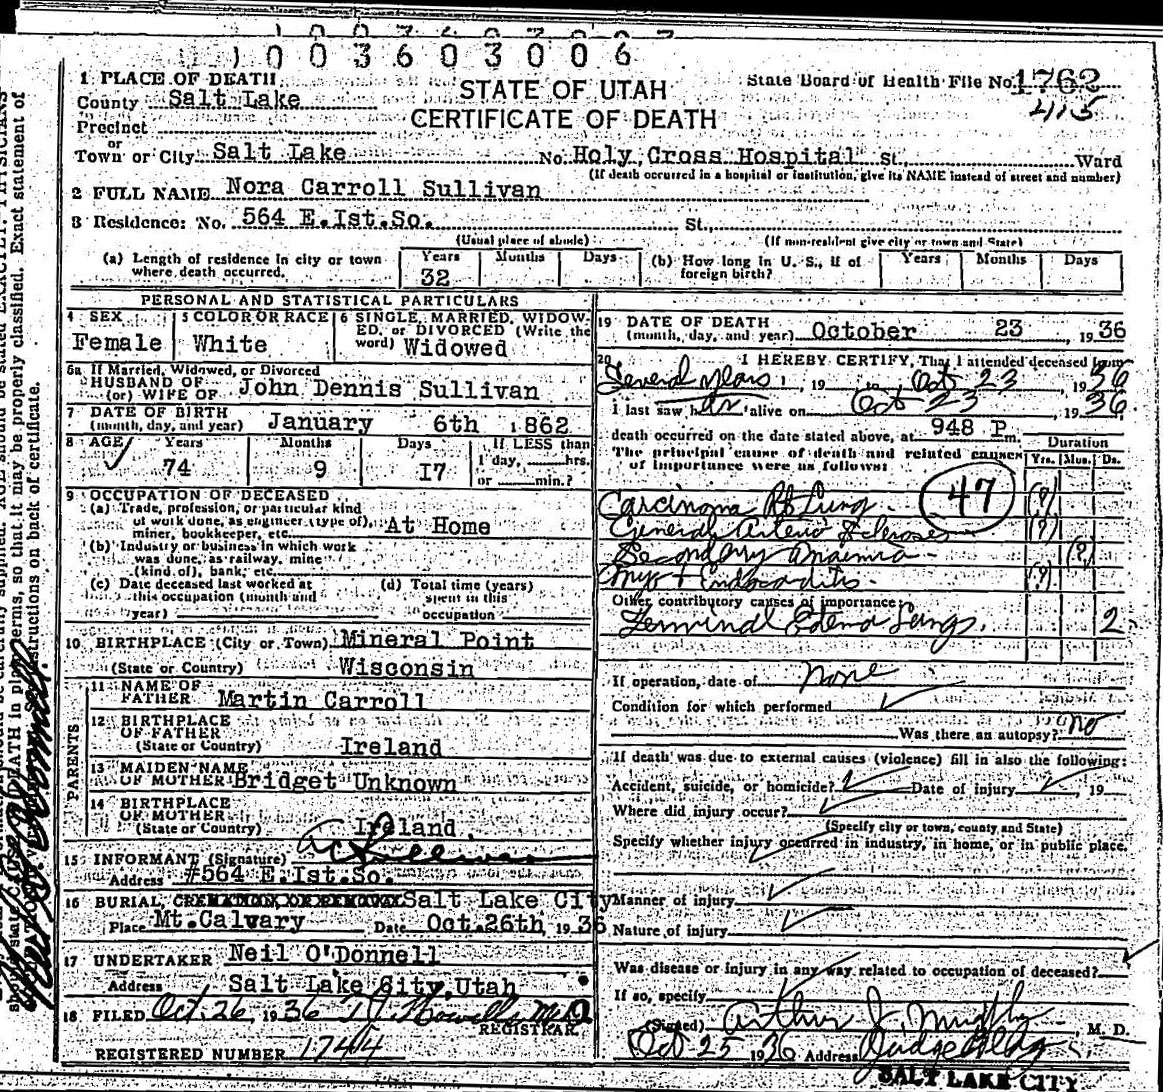 1003603006
1 PLACE OF DEATH
County Salt Lake
Precinct
or
Town or City Salt Lake
STATE OF UTAH
CERTIFICATE OF DEATH
State Board of Health File No. 1762
415
No. Holy Cross Hospital St., Ward
(If death occurred in a hospital or institution, give its NAME instead of street and number)
2 FULL NAME Nora Carroll Sullivan
3 Residence: No. 564 E.Ist.So. St.,
(Usual place of abode) (If non-resident give city or town and State)
(a) Length of residence in city or town where death occurred. Years 32 Months Days
(b) How long in U. S., if of foreign birth? Years Months Days
PERSONAL AND STATISTICAL PARTICULARS
4 SEX Female
5 COLOR OR RACE White
6 SINGLE, MARRIED, WIDOWED, or DIVORCED (Write the word) Widowed
6a If Married, Widowed, or Divorced
HUSBAND OF
(or) WIFE OF John Dennis Sullivan
7 DATE OF BIRTH
(month, day, and year) January 6th 1862
8 AGE Years Months Days If LESS than
74 9 I7 1 day, hrs.
or min.?
9 OCCUPATION OF DECEASED
(a) Trade, profession, or particular kind
of work done, as engineer (type of),
miner, bookkeeper, etc. At Home
(b) Industry or business in which work
was done, as railway, mine
(kind of), bank, etc.
(c) Date deceased last worked at
this occupation (month and
year)
(d) Total time (years)
spent in this
occupation
10 BIRTHPLACE (City or Town) Mineral Point
(State or Country) Wisconsin
PARENTS
11 NAME OF
FATHER Martin Carroll
12 BIRTHPLACE
OF FATHER
(State or Country) Ireland
13 MAIDEN NAME
OF MOTHER Bridget Unknown
14 BIRTHPLACE
OF MOTHER
(State or Country) Ireland
15 INFORMANT (Signature) A C Sullivan
Address #564 E.Ist.So.
16 BURIAL, CREMATION OR REMOVAL Salt Lake City
Place Mt.Calvary Date Oct.26th 1936
17 UNDERTAKER Neil O'Donnell
Address Salt Lake City,Utah
18 FILED Oct. 26, 1936 T J Howells M.D.
REGISTRAR
REGISTERED NUMBER 1744
19 DATE OF DEATH
(month, day, and year) October 23, 1936
20 I HEREBY CERTIFY, That I attended deceased from
Several years, 19 to Oct 23, 1936
I last saw her alive on Oct 23, 1936
death occurred on the date stated above, at 948 P m.
The principal cause of death and related causes
of importance were as follows:
Duration
Yrs. Mos. Ds.
47
Carcinoma Rt Lung (?)
General Arterio Sclerosis (?)
Secondary Anaemia (?)
Myo + Endocarditis. (?)
Other contributory causes of importance:
Terminal Edema Lungs. 2
If operation, date of None
Condition for which performed
Was there an autopsy? no
If death was due to external causes (violence) fill in also the following:
Accident, suicide, or homicide? Date of injury, 19
Where did injury occur?
(Specify city or town, county and State)
Specify whether injury occurred in industry, in home, or in public place.
Manner of injury
Nature of injury
Was disease or injury in any way related to occupation of deceased?
If so, specify
(Signed) Arthur J. Murphy M. D.
Oct 25 1936 Address Judge Bldg
SALT LAKE CITY